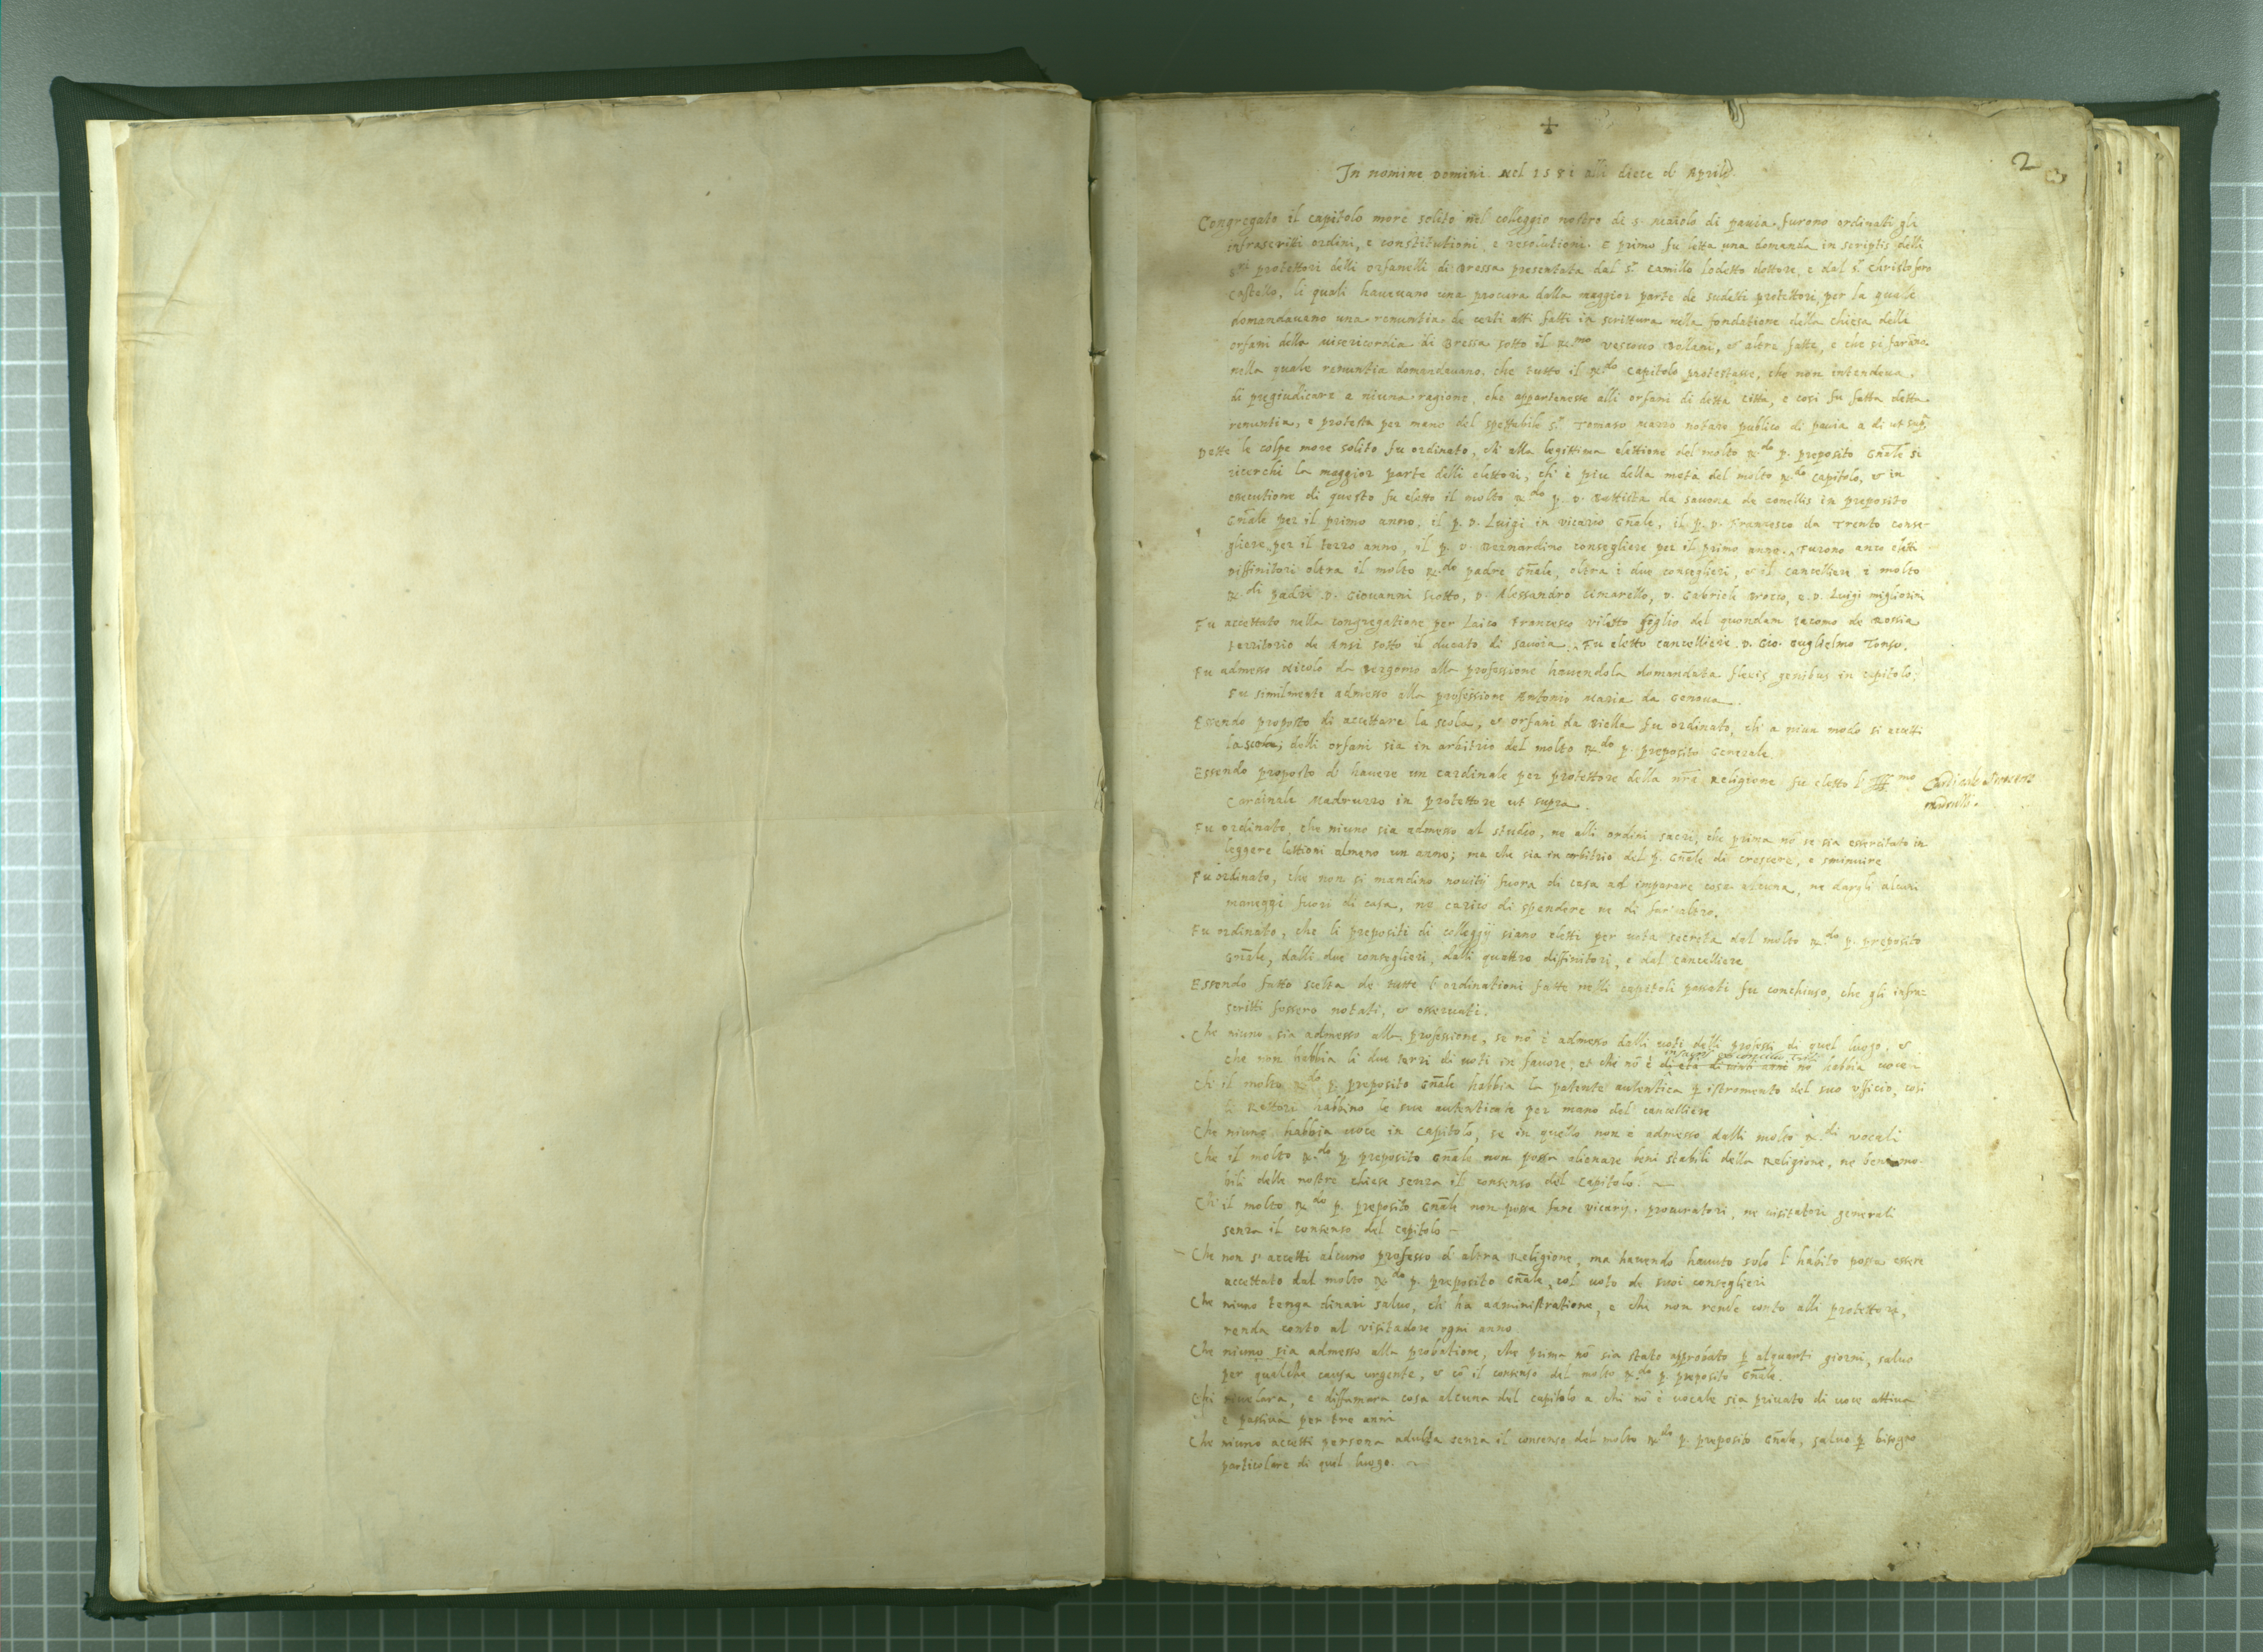 +
2
In nomine Domini. Nel 1581 alli diece d' Aprile.
Congregato il capitolo more solito nel colleggio nostro de s. Maiolo di pavia. furono ordinati gli
infrascritti ordini, e constitutioni, e resolutioni. e primo fu letta una domanda in scriptis delli
s.ri protettori delli orfanelli di Bressa presentata dal s.r Camillo Lodetto dottore, e dal s.r Christoforo
Castello, li quali haueuano una procura dalla maggior parte de sudetti protettori, per la quale
domandauano una renuntia de certi atti fatti in scrittura nella fondatione della chiesa delli
orfani della misericordia di Bressa sotto il R.mo vescouo Bollani, et altre fatte, e che si farano
nella quale renuntia domandauano, che tutto il R.do Capitolo protestasse, che non intendeua
di pregiudicare a niuna ragione, che appartenesse alli orfani di detta città, e cosi fu fatta detta
renuntia, e protesta per mano del spettabile s.r Tomaso notaro publico di pauia a di ut sup.
Dette le colpe more solito fu ordinato, ch' alla legittima elettione del molto R.do p. preposito Gñale si
ricerchi la maggior parte delli elettori, ch' è piu della metà del molto R.do capitolo, et in
essecutione di questo fu eletto il molto R.do p. D. Battista da Sauona de in preposito
Gñale per il primo anno, il p. D. Luigi in vicario Gñale, il p. D. Francesco da Trento conse-
gliere per il terzo anno, il p. D. Bernardino consegliere per il primo anno. Furono anco eletti
Diffinitori oltra il molto R.do padre Gñale, oltra i due conseglieri, et il cancelliere i molto
R.di padri D. Giouanni Scotto, D. Alessandro Cimarello, D. Gabriele Brocco, e D. Luigi migliorini
Fu accettato nella congregatione per Laico Francesco figlio del quondam Iacomo de
territorio de sotto il ducato di sauoia. Fu eletto cancelliere D. Gio. Guglielmo Tonso.
Fu admesso Nicolo da Bergomo alla professione hauendola domandata flexis genibus in capitolo;
Fu similmente admesso alla professione Antonio Maria da Genoua.
Essendo proposto di accettare la scola, et orfani da Biella fu ordinato, ch' a niun modo si accetti
la scola; delli orfani sia in arbitrio del molto R.do p. preposito Generale
Essendo proposto d' hauere un cardinale per protettore della nr̃a Religione fu eletto l' Ill.mo
Cardinale Madruzzo in protettore ut supra.
Cardinale
Fu ordinato, che niuno sia admesso al studio, ne alli ordini sacri, che prima nõ se sia essercitato in
leggere lettioni almeno un anno; ma che sia in arbitrio del p. Gñale di crescere, e sminuire
Fu ordinato, che non si mandino nouitij fuora di casa ad imparare cosa alcuna, ne dargli alcuni
maneggi fuori di casa, ne carico di spendere ne di far altro.
Fu ordinato, che li prepositi di colleggij siano eletti per uota secreta dal molto R.do p. preposito
Gñale, dalli due conseglieri, dalli quattro diffinitori, e dal cancelliere
Essendo fatto scelta de tutte l' ordinationi fatte nelli capitoli passati fu conchiuso, che gli infra-
scritti fossero notati, et osseruati.
Che niuno sia admesso alla professione, se nõ è admesso dalli uoti delli professi di quel luogo, et
che non habbia li due terzi di uoti in fauore, et chi nõ è di età di uinti anni nõ habbia uoce
Ch' il molto R.do p. preposito Gñale habbia la patente autentica p istromento del suo Vfficio, cosi
li Rettori habbino le sue autenticate per mano del cancelliere
Che niuno habbia uoce in capitolo, se in quello non è admesso dalli molto R.di vocali
Che il molto R.do p. preposito Gñale non possa alienare beni stabili della Religione, ne beni mo-
bili delle nostre chiese senza il consenso del Capitolo.
Ch' il molto R.do p. preposito Gñale non possa fare vicarij, procuratori, ne uisitatori generali
senza il consenso del capitolo
Che non s' accetti alcuno professo d' altra Religione, ma hauendo hauuto solo l' habito possa essere
accettato dal molto R.do p. preposito Gñale, col uoto de suoi conseglieri
Che niuno tenga dinari saluo, chi ha administratione, e chi non rende conto alli protettori,
renda conto al visitadore ogni anno
Che niuno sia admesso alla probatione, che prima nõ sia stato approbato p alquanti giorni, saluo
per qualche causa urgente, et cõ il consenso del molto R.do p. preposito Gñale.
Chi riuelara, e diffamara cosa alcuna del capitolo a chi nõ è uocale sia priuato di uoce attiua
e passiua per tre anni
Che niuno accetti persona adulta senza il consenso del molto R.do p. preposito Gñale, saluo p bisogno
particolare di quel luogo.